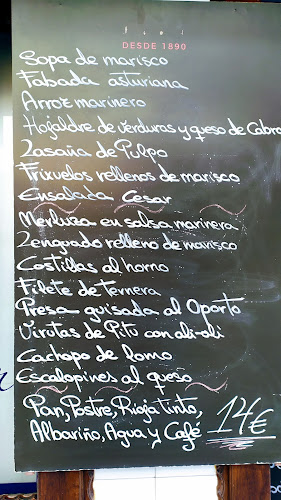 DESDE 1890
Sopa de marisco
Fabada asturiana
Arroz marinero
Hojaldre de verduras y queso de Cabra
Lasaña de Pulpo
Frixuelos rellenos de marisco
Ensalada Cesar
Merluza en salsa marinera
Lenguado relleno de marisco
Costillas al horno
Filete de ternera
Presa guisada al Oporto
Virutas de Pitu con ali-oli
Cachopo de lomo
Escalopines al queso
Pan, Postre, Rioja tinto,
Albariño, Agua y Café 14€